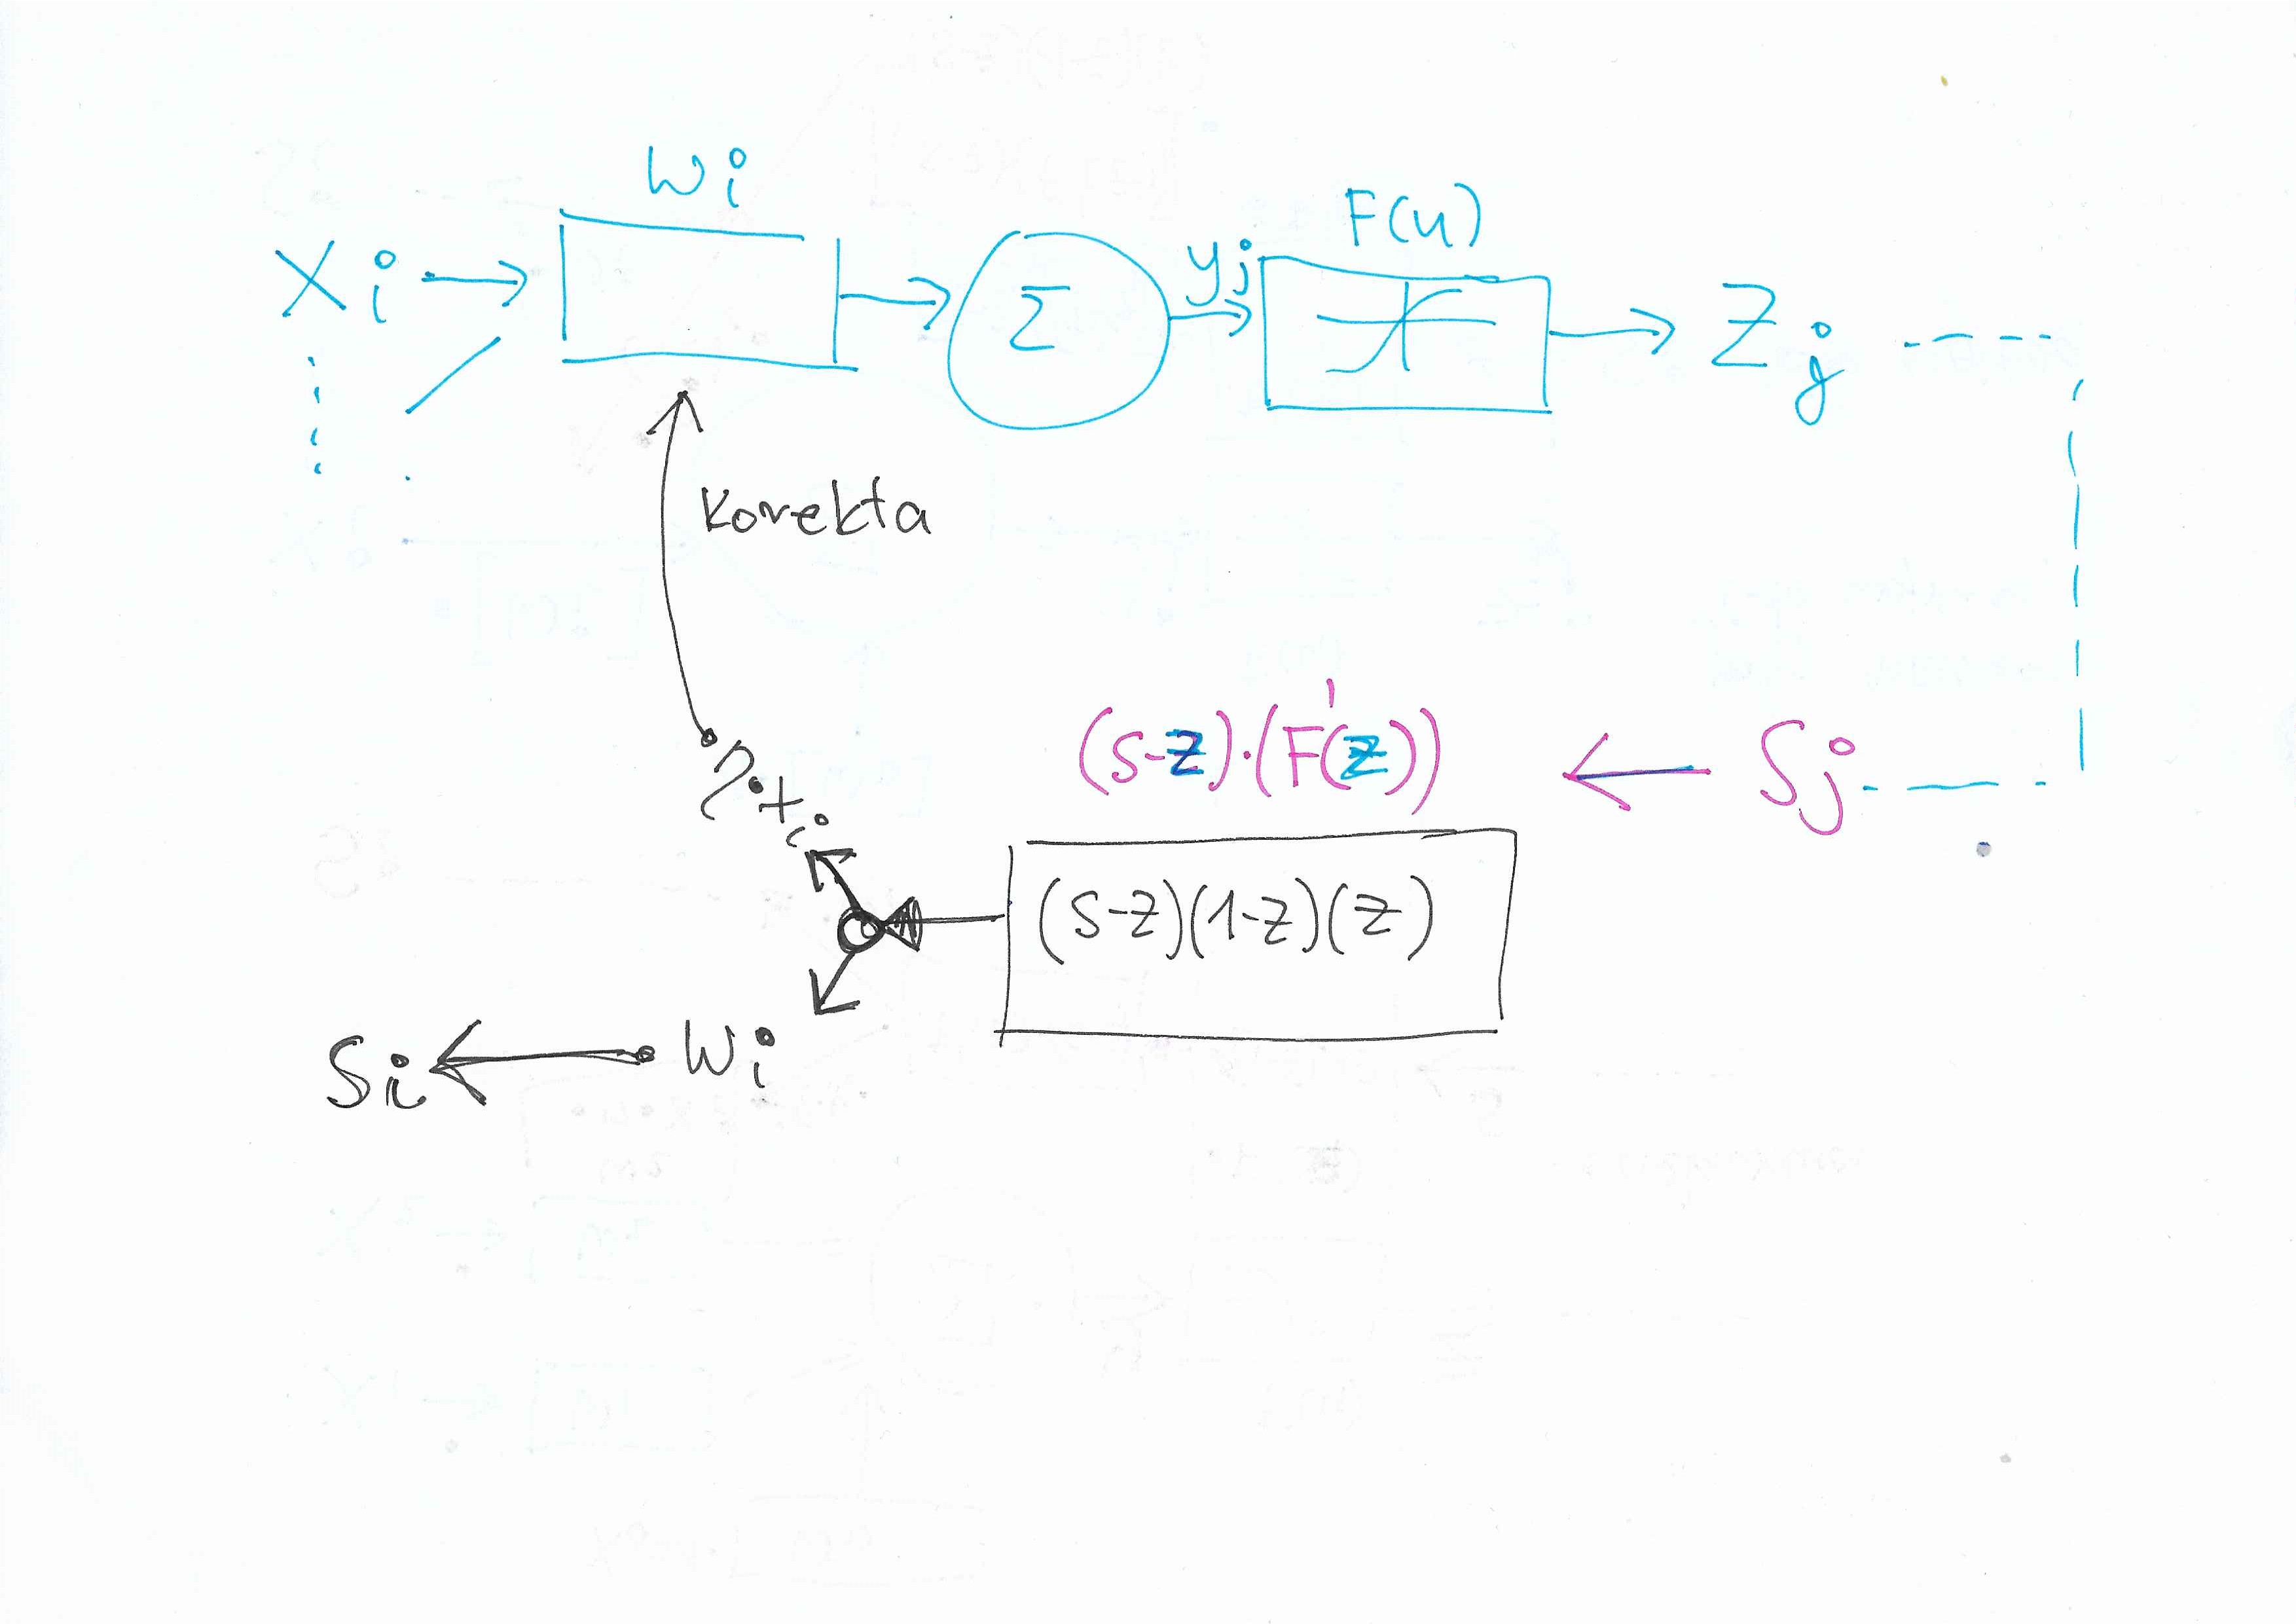 Wi
F(u)
Xi
Σ
yj
Zj
Korekta
(s-z)·(F'(z))
Sj
(s-z)(1-z)(z)
Si
Wi